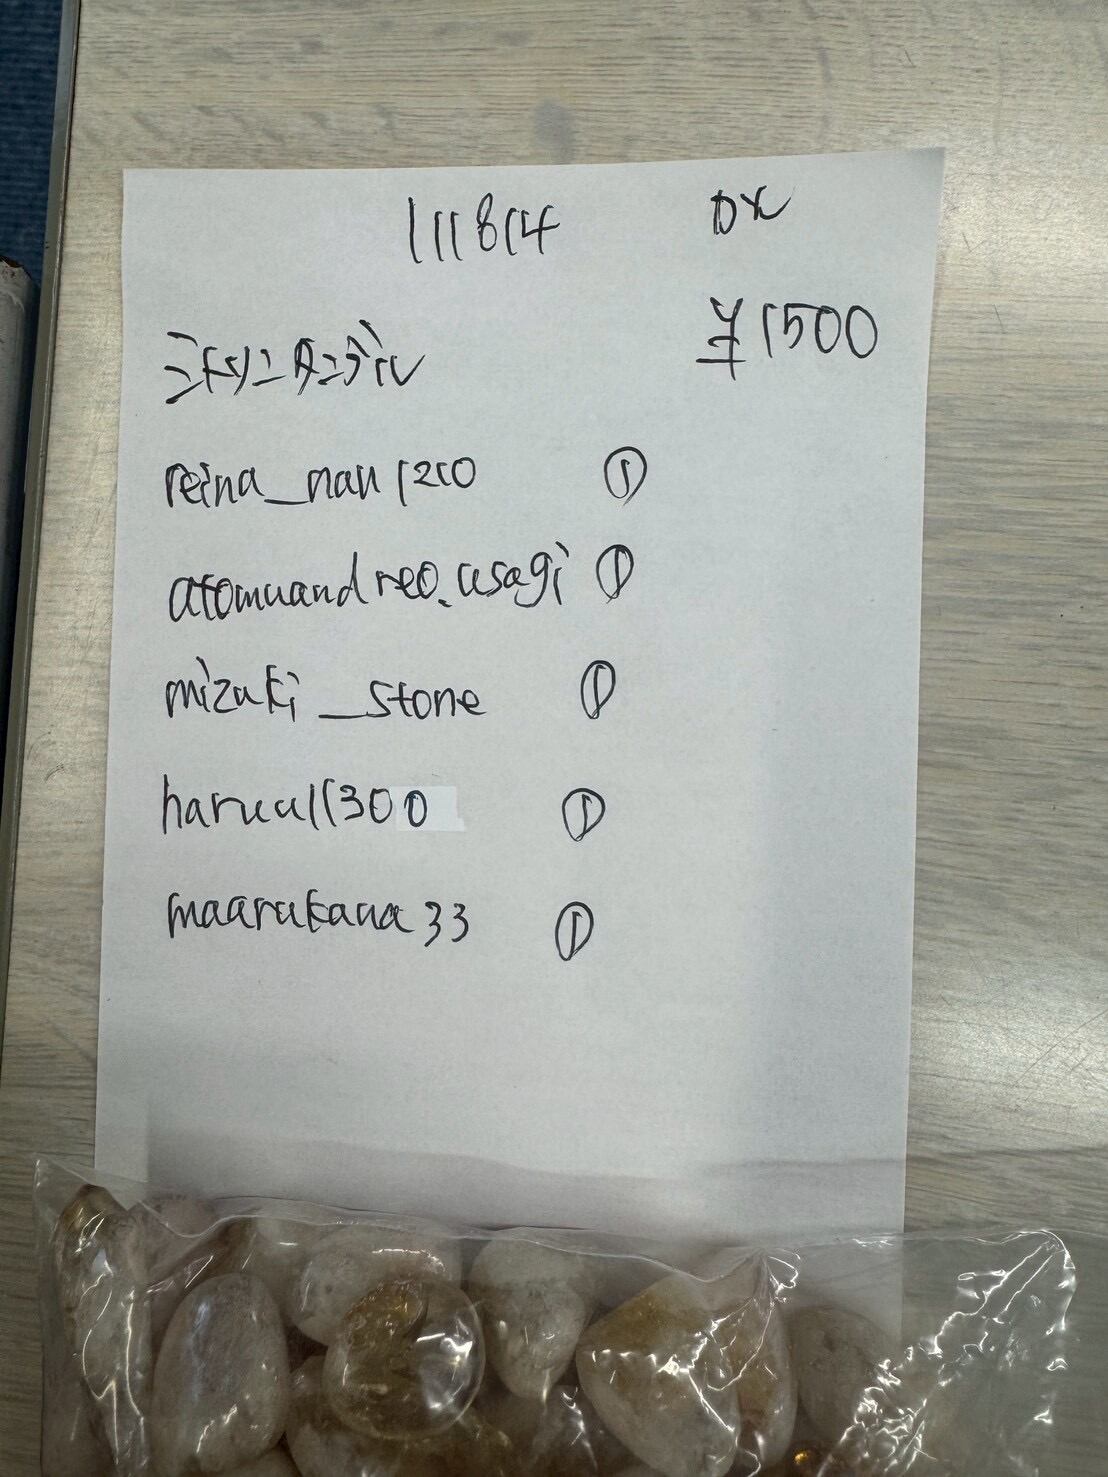 111814 DX
¥1500
reina_nan1210 ①
atomuandreo.usagi ①
mizuki_stone ①
harua11300 ①
maarukana33 ①